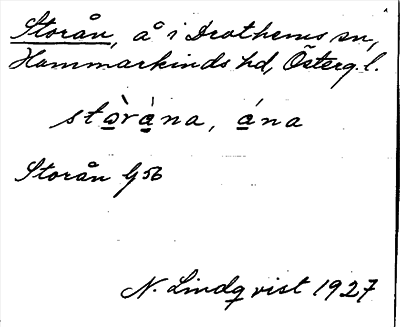 Storån, å i Drothems sn,
Hammarkinds hd, Östergl.
stò̲rá̲na, á̲na
Storån G 56
N. Lindqvist 1927